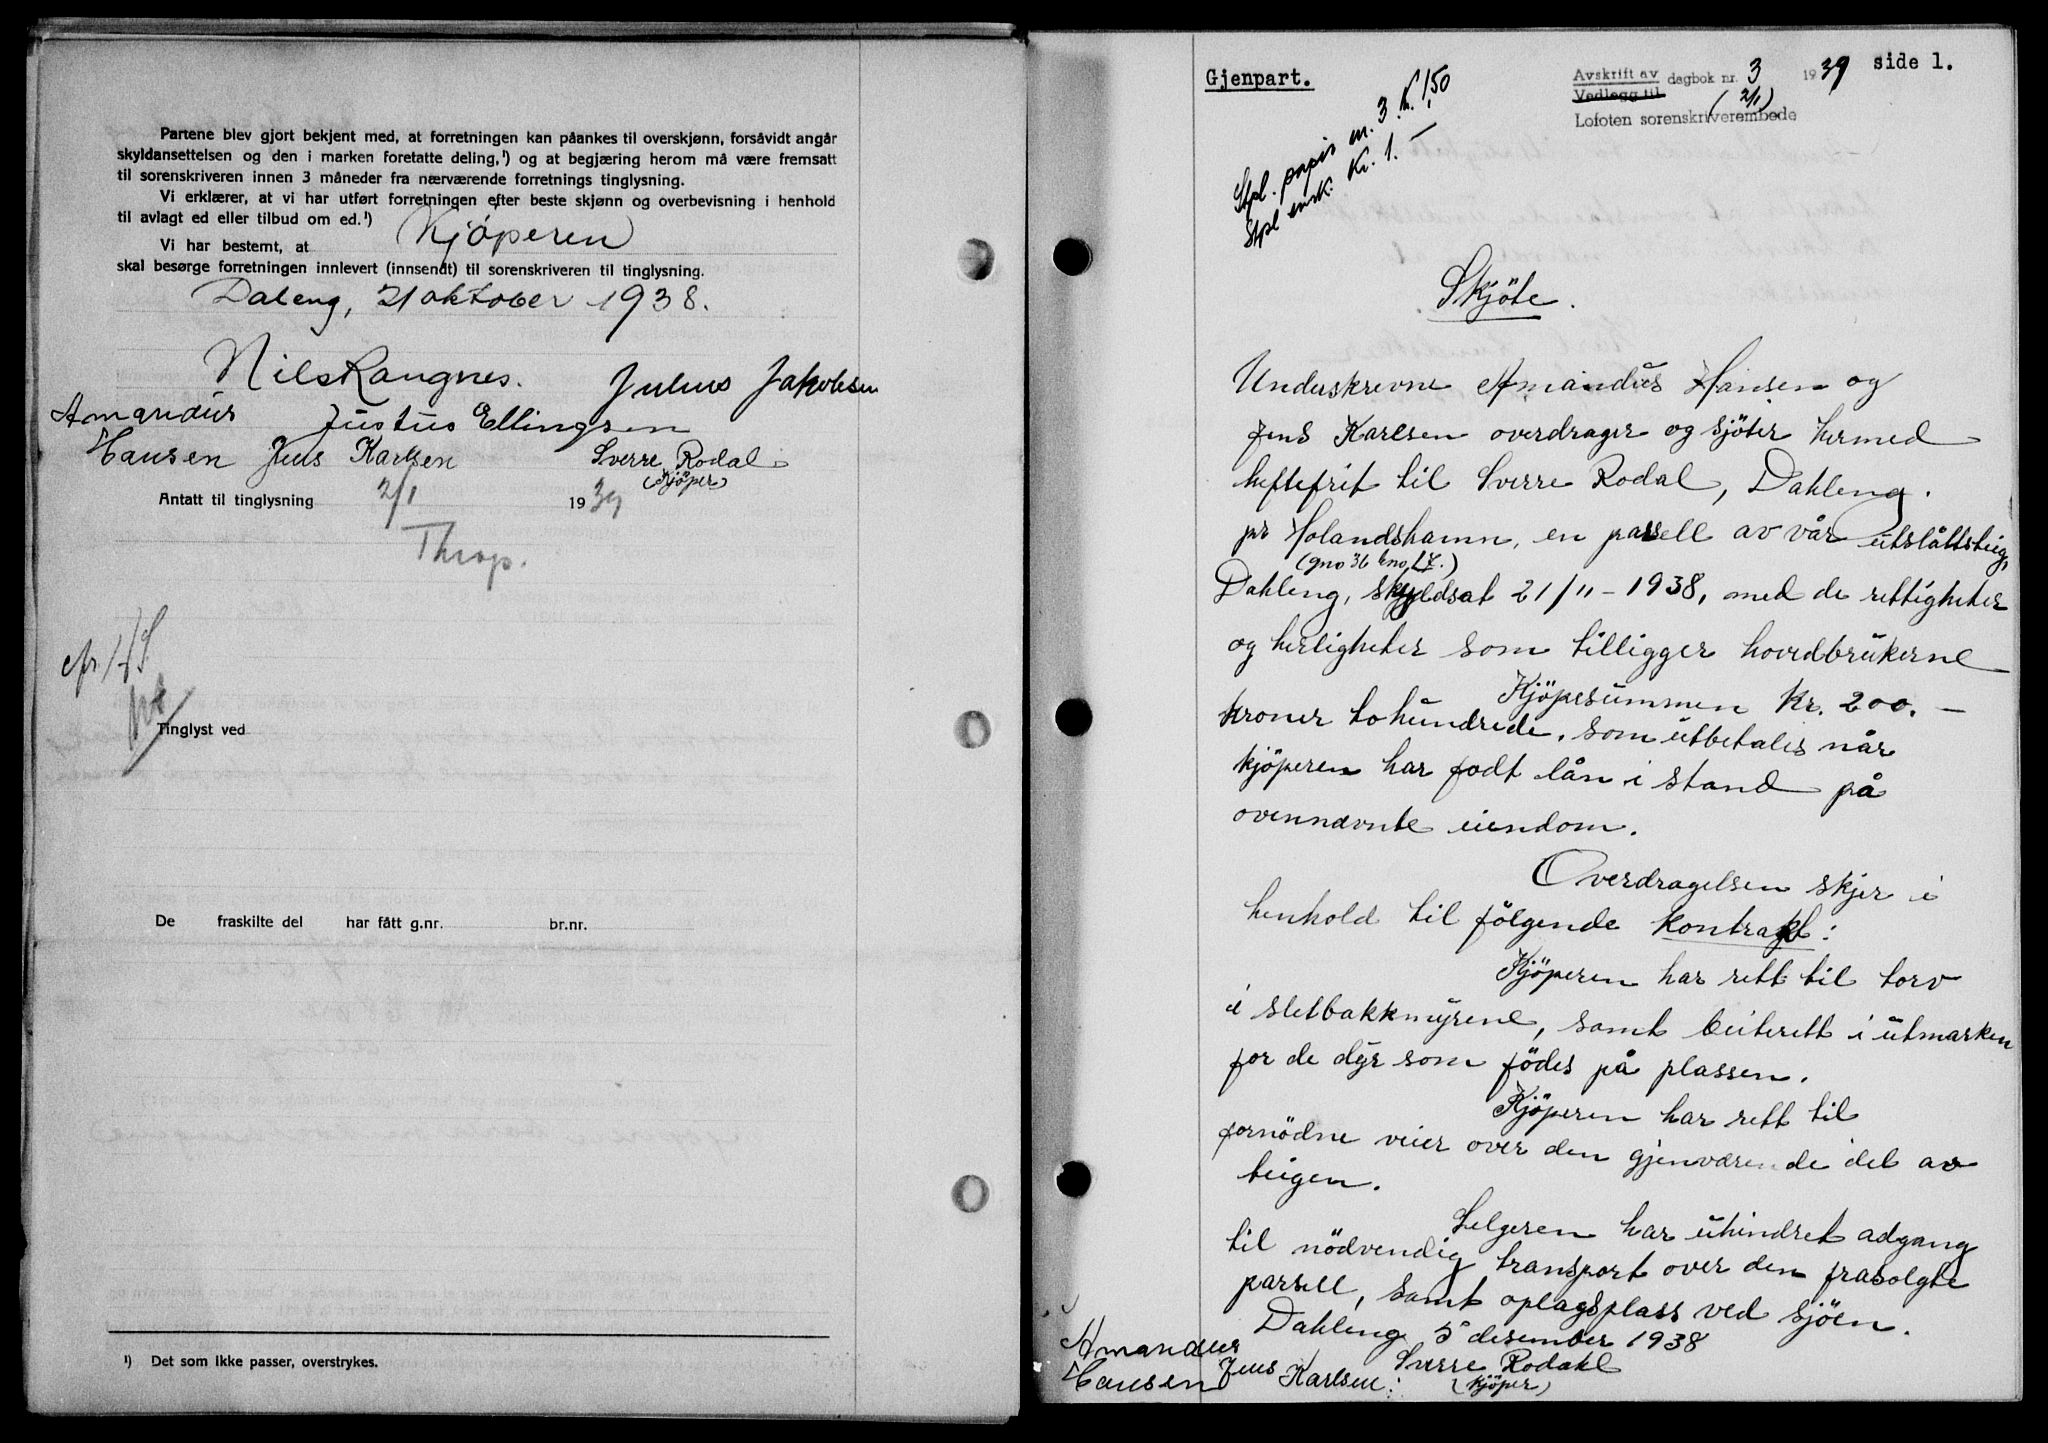 Partene blev gjort bekjent med, at forretningen kan påankes til overskjønn, forsåvidt angår
skyldansettelsen og den i marken foretatte deling,¹) og at begjæring herom må være fremsatt
til sorenskriveren innen 3 måneder fra nærværende forretnings tinglysning.
Vi erklærer, at vi har utført forretningen efter beste skjønn og overbevisning i henhold
til avlagt ed eller tilbud om ed.¹)
Vi har bestemt, at Kjöperen
skal besørge forretningen innlevert (innsendt) til sorenskriveren til tinglysning.
Daleng, 21 oktober 1938.
Nils Rangnes. Julius Jakobsen
Amandus Justus Ellingsen
Hansen Jens Karlsen Sverre Rodal
(Kjöper)
Antatt til tinglysning 2/1 1939
Throp.
Tinglyst ved
De fraskilte del har fått g.nr. br.nr.
¹) Det som ikke passer, overstrykes.
Gjenpart.
Avskrift av dagbok nr. 3 1939 side 1.
Vedlegg til (2/1)
Lofoten sorenskriverembede
Stpl. papir m. 3. K. 1,50
Stpl ensk. Kr. 1.–
Skjöte.
Underskrevne Amandus Hansen og
Jens Karlsen overdrager og sjöter hermed
heftefrit til Sverre Rodal, Dahleng.
pr Holandshamn, en passell av vår utslåttsteig,
(gno 36 bno 17.)
Dahleng, skyldsat 21/11 – 1938, med de rettigheter
og herligheter som tilligger hovedbrukerne
Kjöpesummen Kr. 200. –
kroner tohundrede, som utbetales når
kjöperen har fodt lån i stand på
ovennævnte eiendom.
Overdragelsen skjer i
henhold til fölgende kontrakt:
Kjöperen har rett til torv
i sletbakkmyrene, samt beiterett i utmarken
for de dyr som födes på plassen.
Kjöperen har rett til
fornödne veier over den gjenværende del av
teigen.
Selgeren har uhindret adgang
til nödvendig transport over den frasolgte
parsell, samt oplagsplass ved sjöen.
Dahleng 5 desember 1938
Amandus
Hansen Jens Karlsen: Sverre Rodahl
(Kjöper)